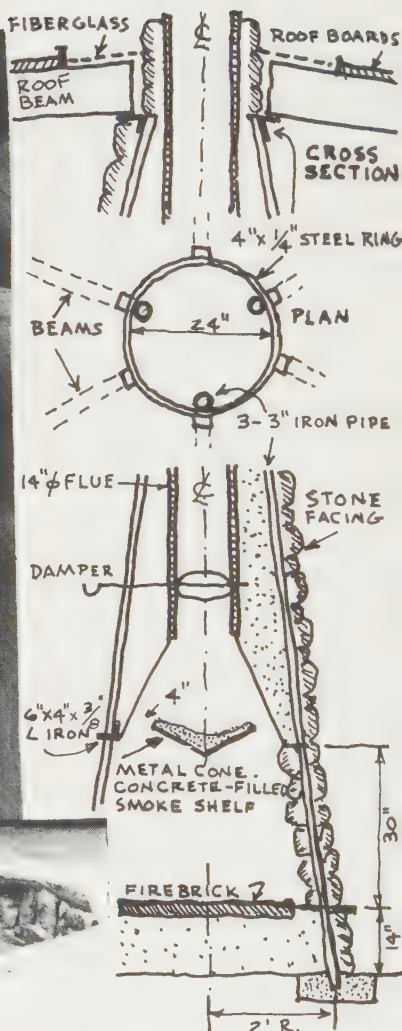 FIBERGLASS
ROOF BOARDS
ROOF
BEAM
CROSS
SECTION
4"x 1/4" STEEL RING
PLAN
BEAMS
24"
3-3" IRON PIPE
14"φ FLUE
STONE
FACING
DAMPER
6"x4"x 3/8"
L IRON
4"
METAL CONE.
CONCRETE-FILLED
SMOKE SHELF
30"
FIREBRICK
14"
2' R.